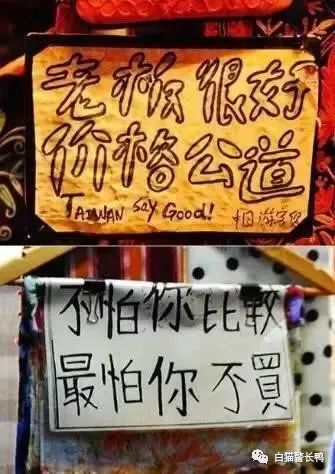 老板很好
价格公道
TAIWAN Say Good!
中国游客留
不怕你比較
最怕你不買
白猫警长鸭